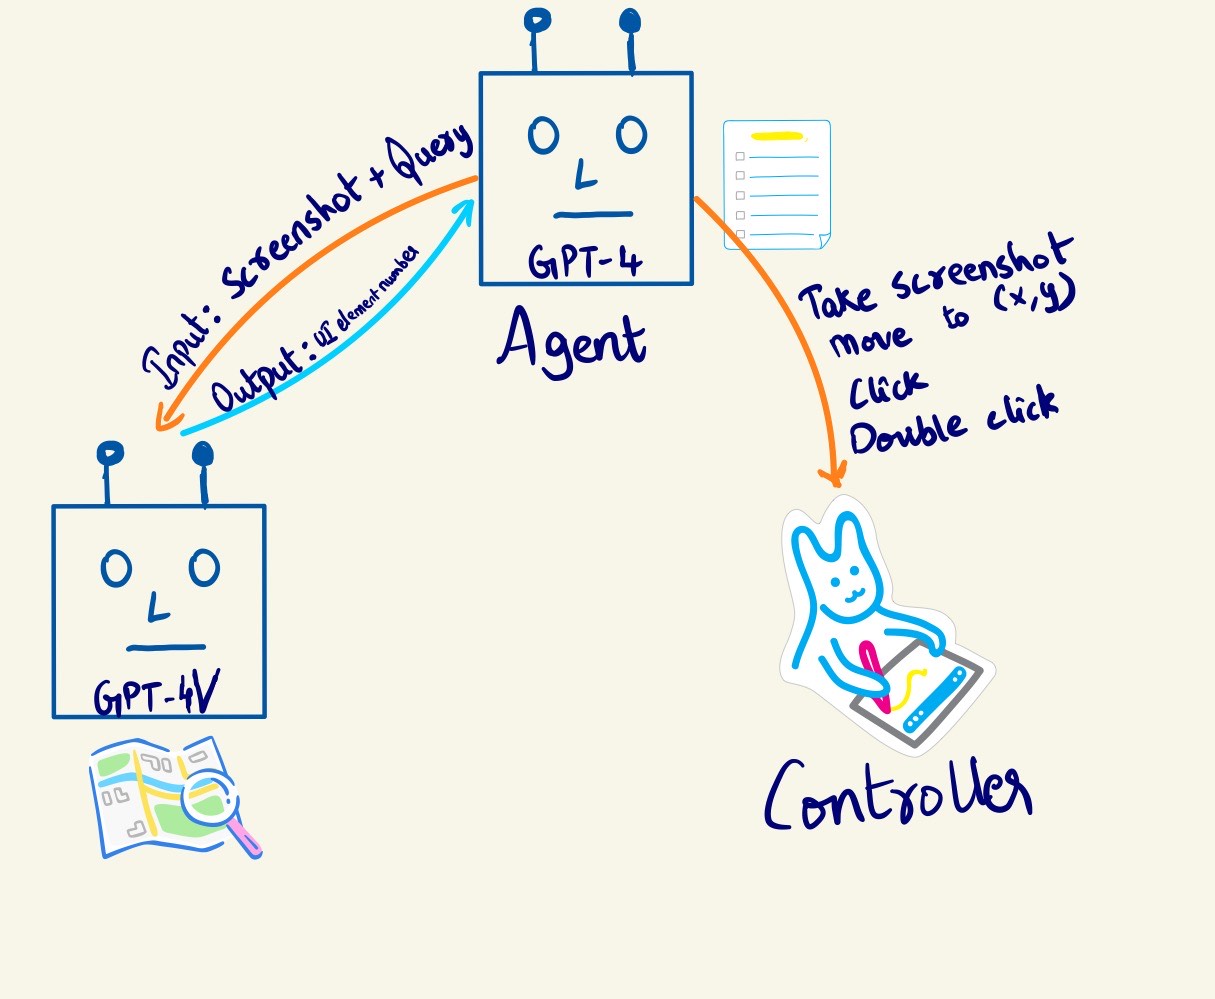 Input: Screenshot + Query
Output: UI element number
GPT-4
Agent
Take screenshot
move to (x,y)
Click
Double click
GPT-4V
Controller